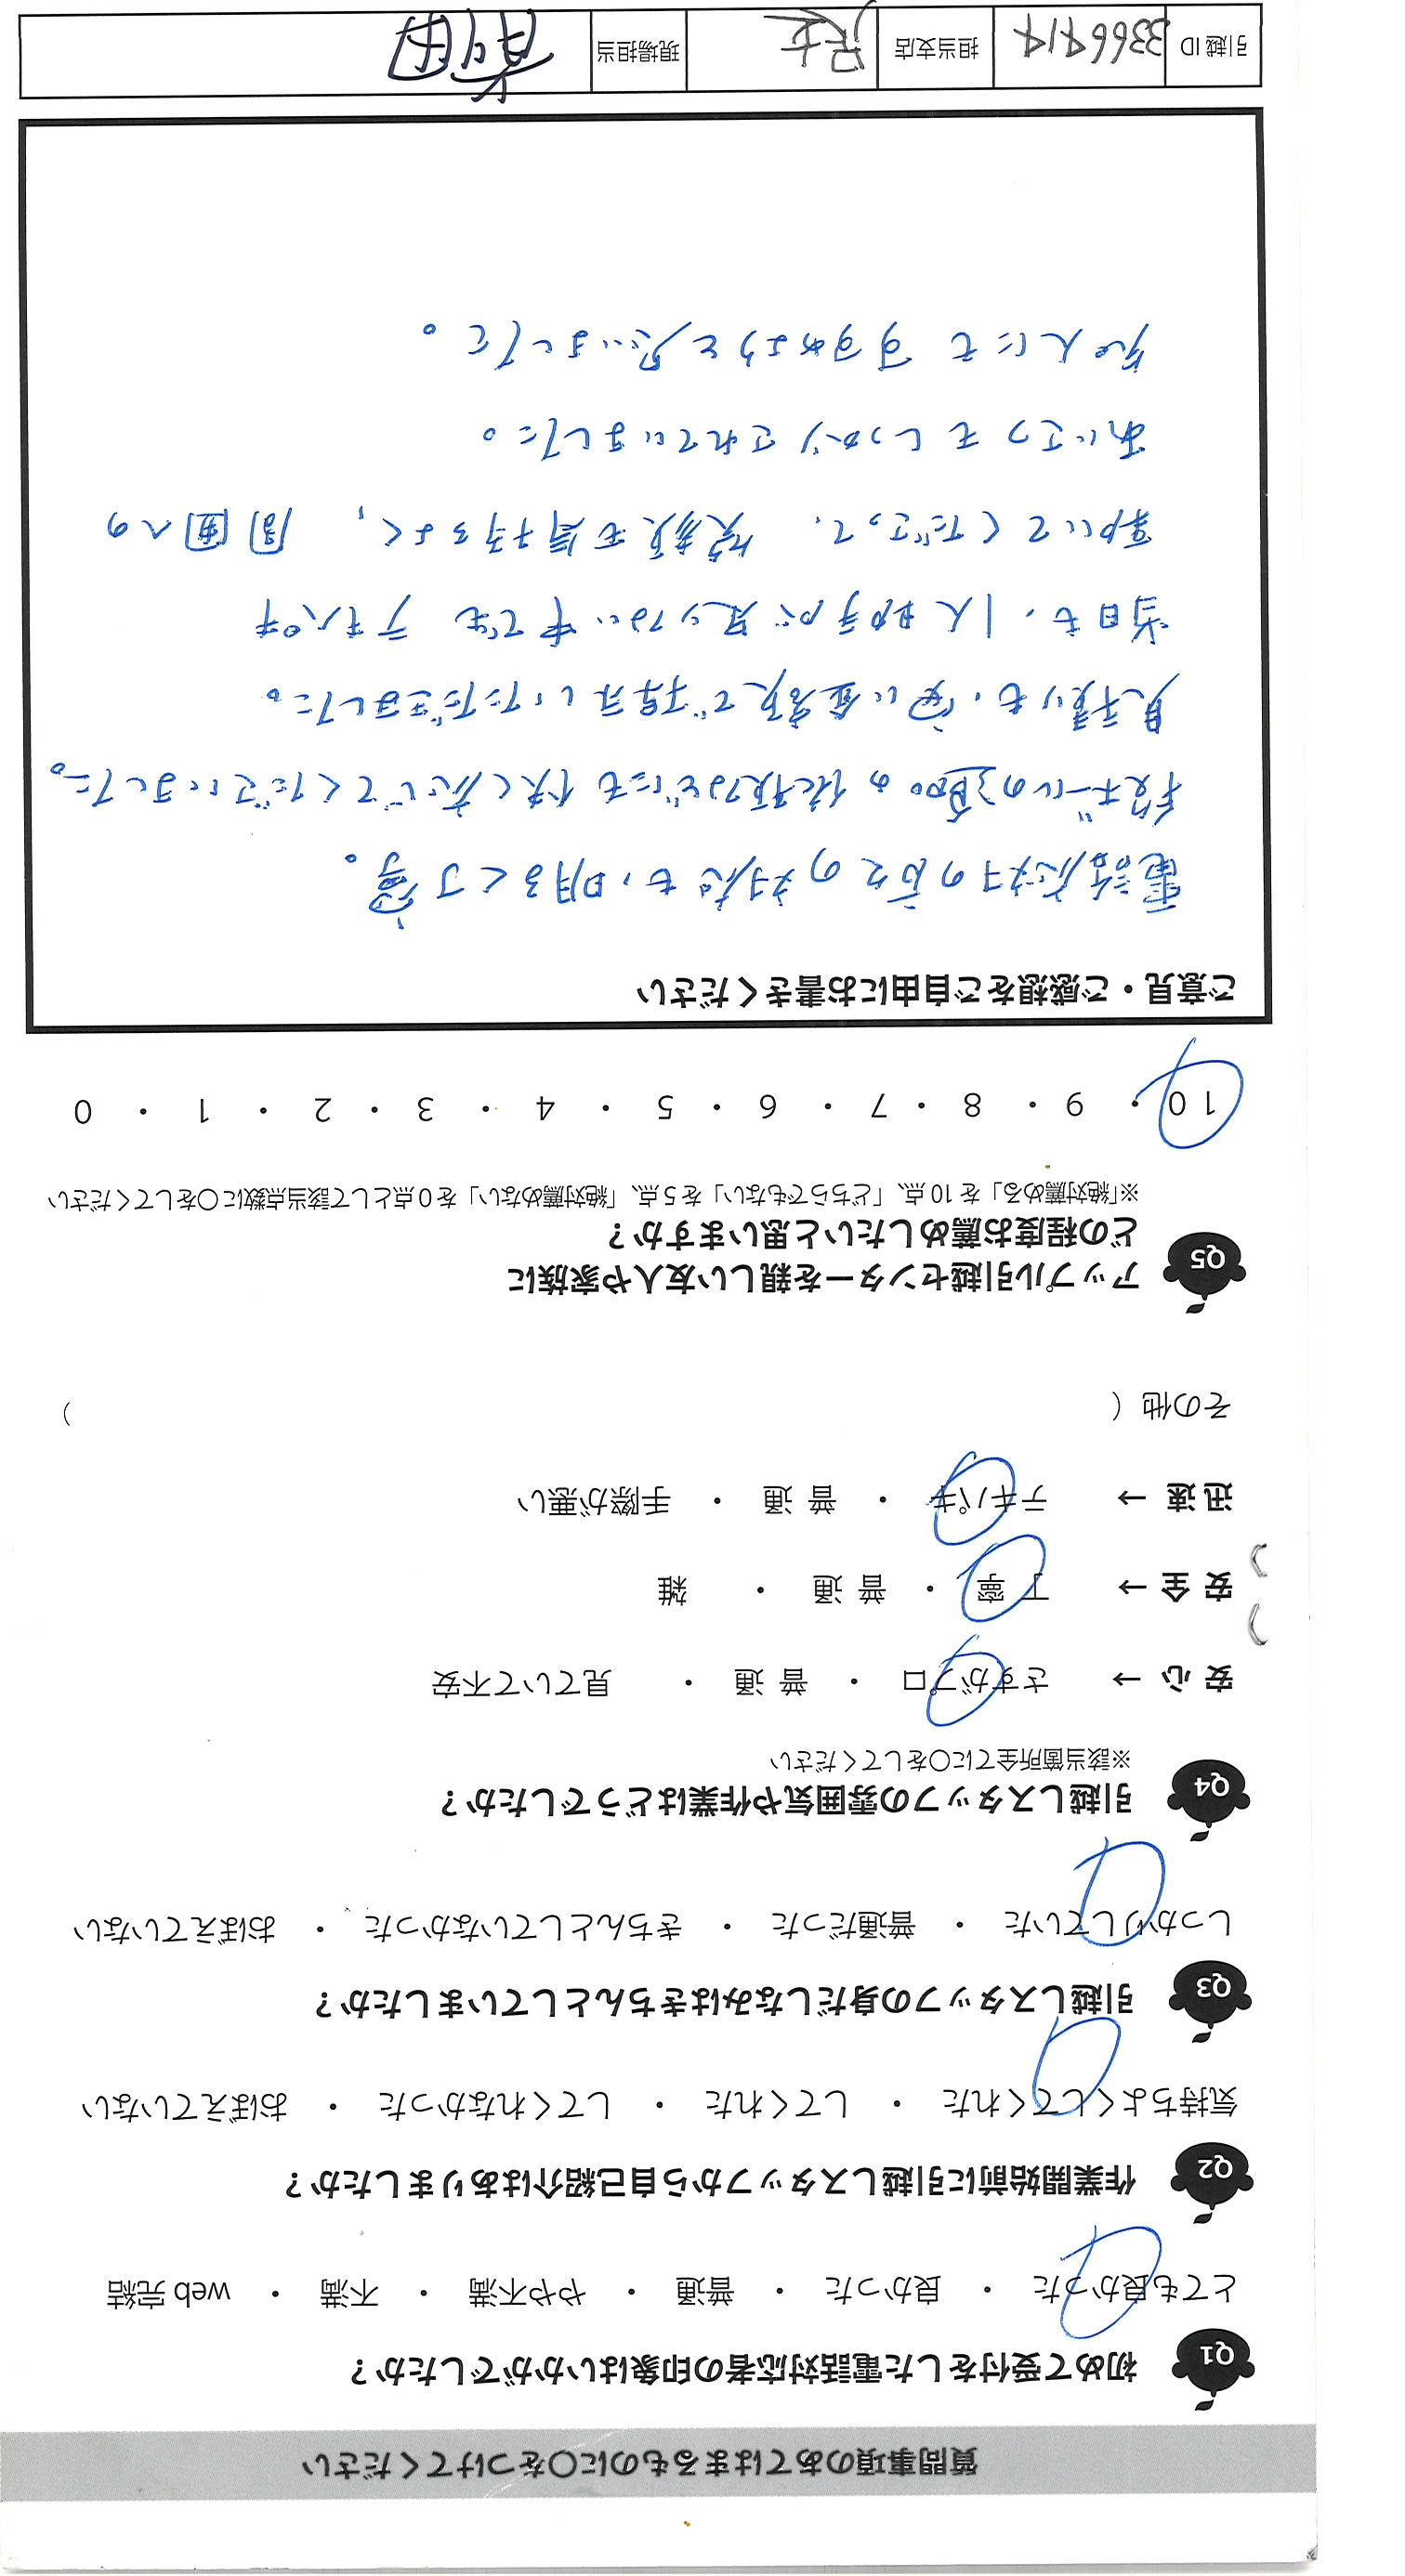 質問事項のあてはまるものに○をつけてください
Q1 初めて受付をした電話対応者の印象はいかがでしたか？
とても良かった ・ 良かった ・ 普通 ・ やや不満 ・ 不満 ・ web 完結
Q2 作業開始前に引越しスタッフから自己紹介はありましたか？
気持ちよくしてくれた ・ してくれた ・ してくれなかった ・ おぼえていない
Q3 引越しスタッフの身だしなみはきちんとしていましたか？
しっかりしていた ・ 普通だった ・ きちんとしていなかった ・ おぼえていない
Q4 引越しスタッフの雰囲気や作業はどうでしたか？
※該当箇所全てに○をしてください
安 心 → さすがプロ ・ 普 通 ・ 見ていて不安
安 全 → 丁 寧 ・ 普 通 ・ 雑
迅 速 → テキパキ ・ 普 通 ・ 手際が悪い
その他（ ）
Q5 アップル引越センターを親しい友人や家族に
どの程度お薦めしたいと思いますか？
※「絶対薦める」を 10 点、「どちらでもない」を 5 点、「絶対薦めない」を 0 点として該当点数に○をしてください
10 ・ 9 ・ 8 ・ 7 ・ 6 ・ 5 ・ 4 ・ 3 ・ 2 ・ 1 ・ 0
ご意見・ご感想をご自由にお書きください
電話応対の方々の対応も、明るく丁寧。
段ボールの追加の依頼などにも快く応じてくださいました。
見積りも、安い金額で提示いただきました。
当日も、1人助手が足りない中でもテキパキ
動いてくださって、笑顔も気持ちよく、周囲への
あいさつもしっかりされていました。
知人にもすすめようと思いました。
引越 ID 3366414 担当支店 足立 現場担当